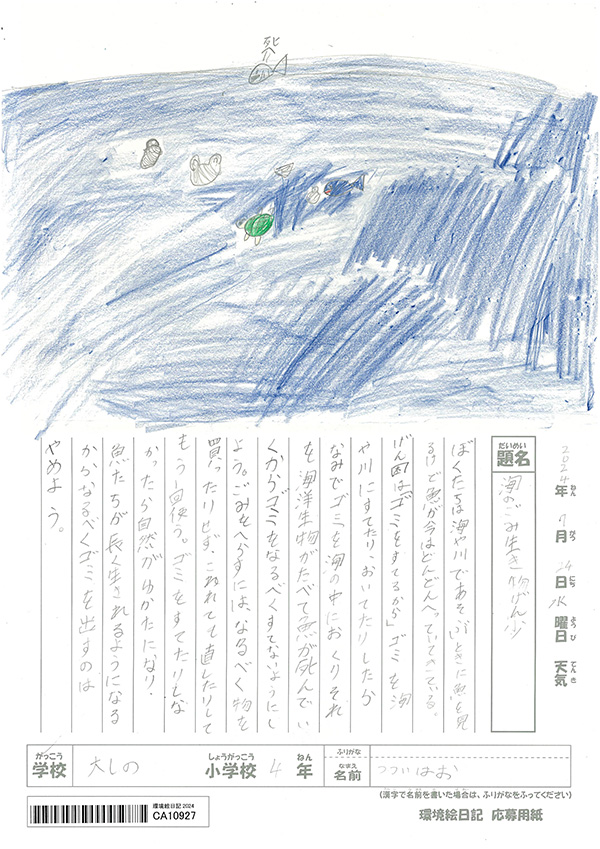 死
2024年ねん 7月がつ 24日にち 水曜日ようび 天気てんき
だいめい
題名
海のごみ生き物げん少
ぼくたちは海や川であそぶときに魚を見
るけど魚が今はどんどんへっていってきている。
げん因は「ゴミをすてるから」ゴミを海
や川にすてたり、おいてたりしたら
なみでゴミを海の中におくりそれ
を海洋生物がたべて魚が死んでい
くからゴミをなるべくすてないようにし
よう。ごみをへらすにはなるべく物を
買ったりせず、こわれても直したりして
もう一回使う。ゴミをすてたりしな
かったら自然がゆたかになり、
魚たちが長く生きれるようになる
からなるべくゴミを出すのは
やめよう。
がっこう
学校
大しの
しょうがっこう
小学校
4
ねん
年
ふりがな
なまえ
名前
つついはお
(漢字で名前を書いた場合は、ふりがなをふってください)
環境絵日記2024
CA10927
環境絵日記 応募用紙